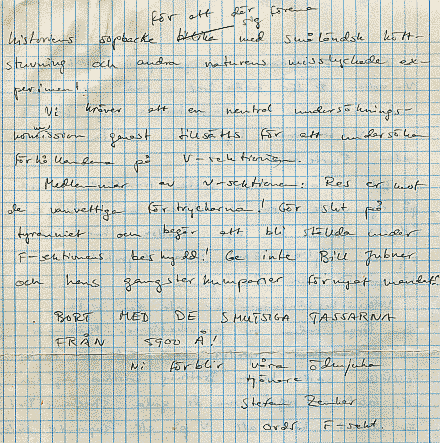 för att där förena
historiens sopbacke blika sig med småländsk kött-
stuvning och andra naturens misslyckade ex-
periment.
Vi kräver att en neutral undersöknings-
kommission genast tillsätts för att undersöka
förhållandena på V-sektionen.
Medlemmar av V-sektionen: Res er mot
de vanvettiga förtryckarna! Gör slut på
tyranniet och begär att bli ställda under
F-sektionens beskydd! Ge inte Bill Jubner
och hans gangsterkumpaner förnyat mandat!
BORT MED DE SMUTSIGA TASSARNA
FRÅN 5900 Å!
Ni förblir våra ödmjuka
tjänare
Stefan
Ordf. F-sekt.